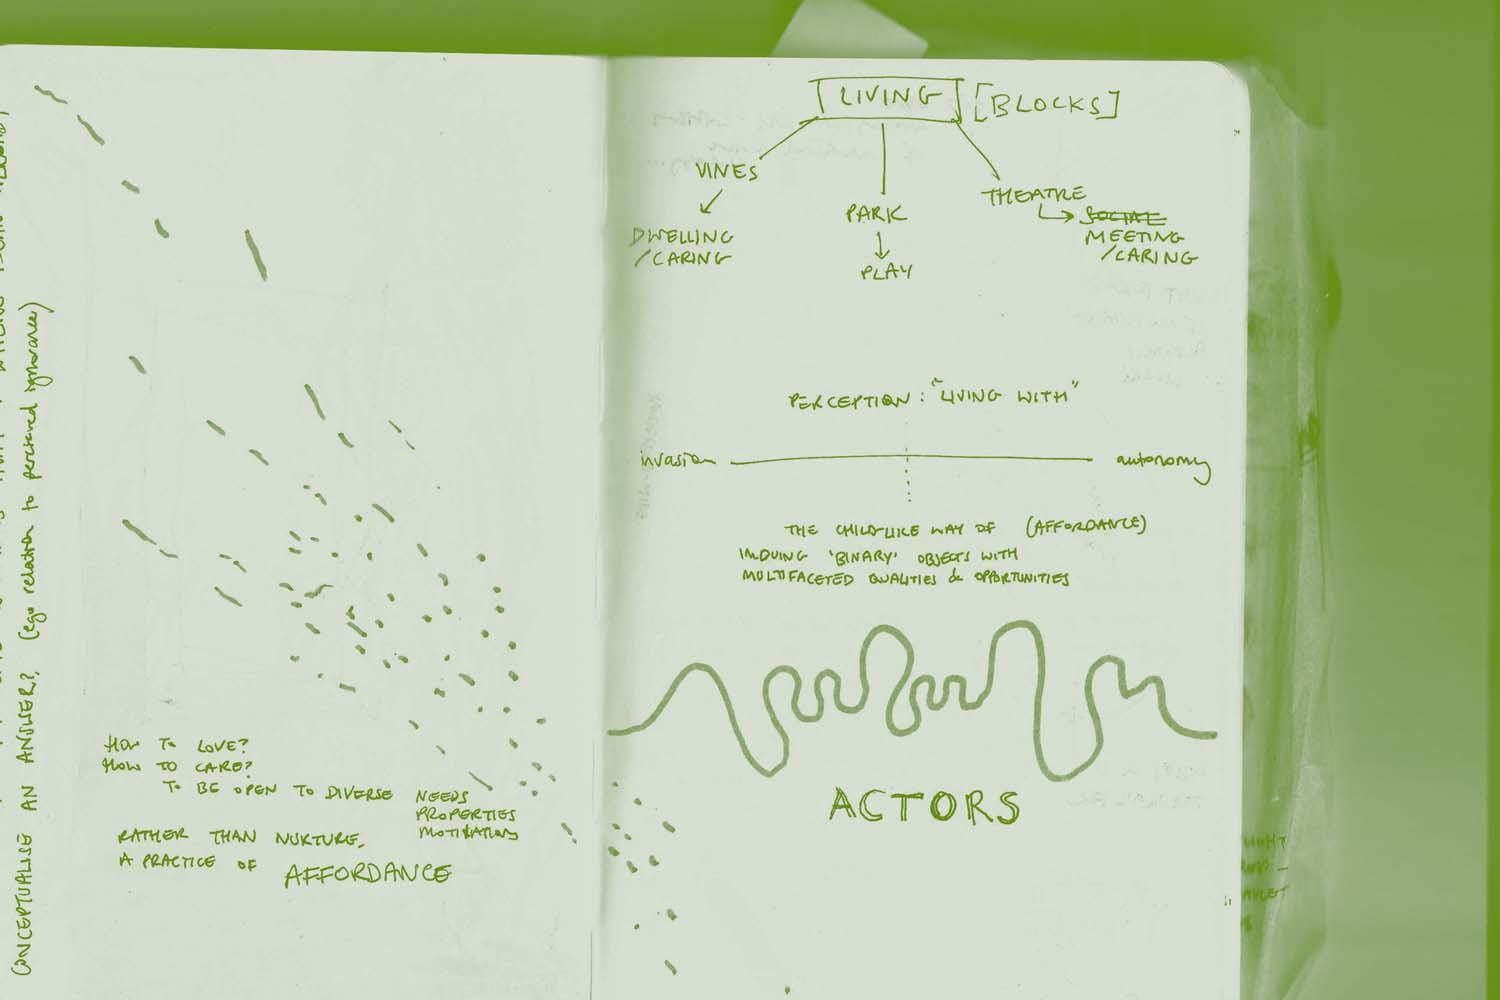 CONCEPTUALISE AN ANSWER? (ego relation to perceived ignorance)
HOW TO LOVE?
HOW TO CARE?
TO BE OPEN TO DIVERSE NEEDS
PROPERTIES
MOTIVATIONS
RATHER THAN NURTURE,
A PRACTICE OF AFFORDANCE
LIVING [BLOCKS]
VINES
DWELLING
/CARING
PARK
PLAY
THEATRE
SOCIAL
MEETING
/CARING
PERCEPTION: "LIVING WITH"
invasion
autonomy
THE CHILD-LIKE WAY OF (AFFORDANCE)
IMBUING 'BINARY' OBJECTS WITH
MULTIFACETED QUALITIES & OPPORTUNITIES
ACTORS